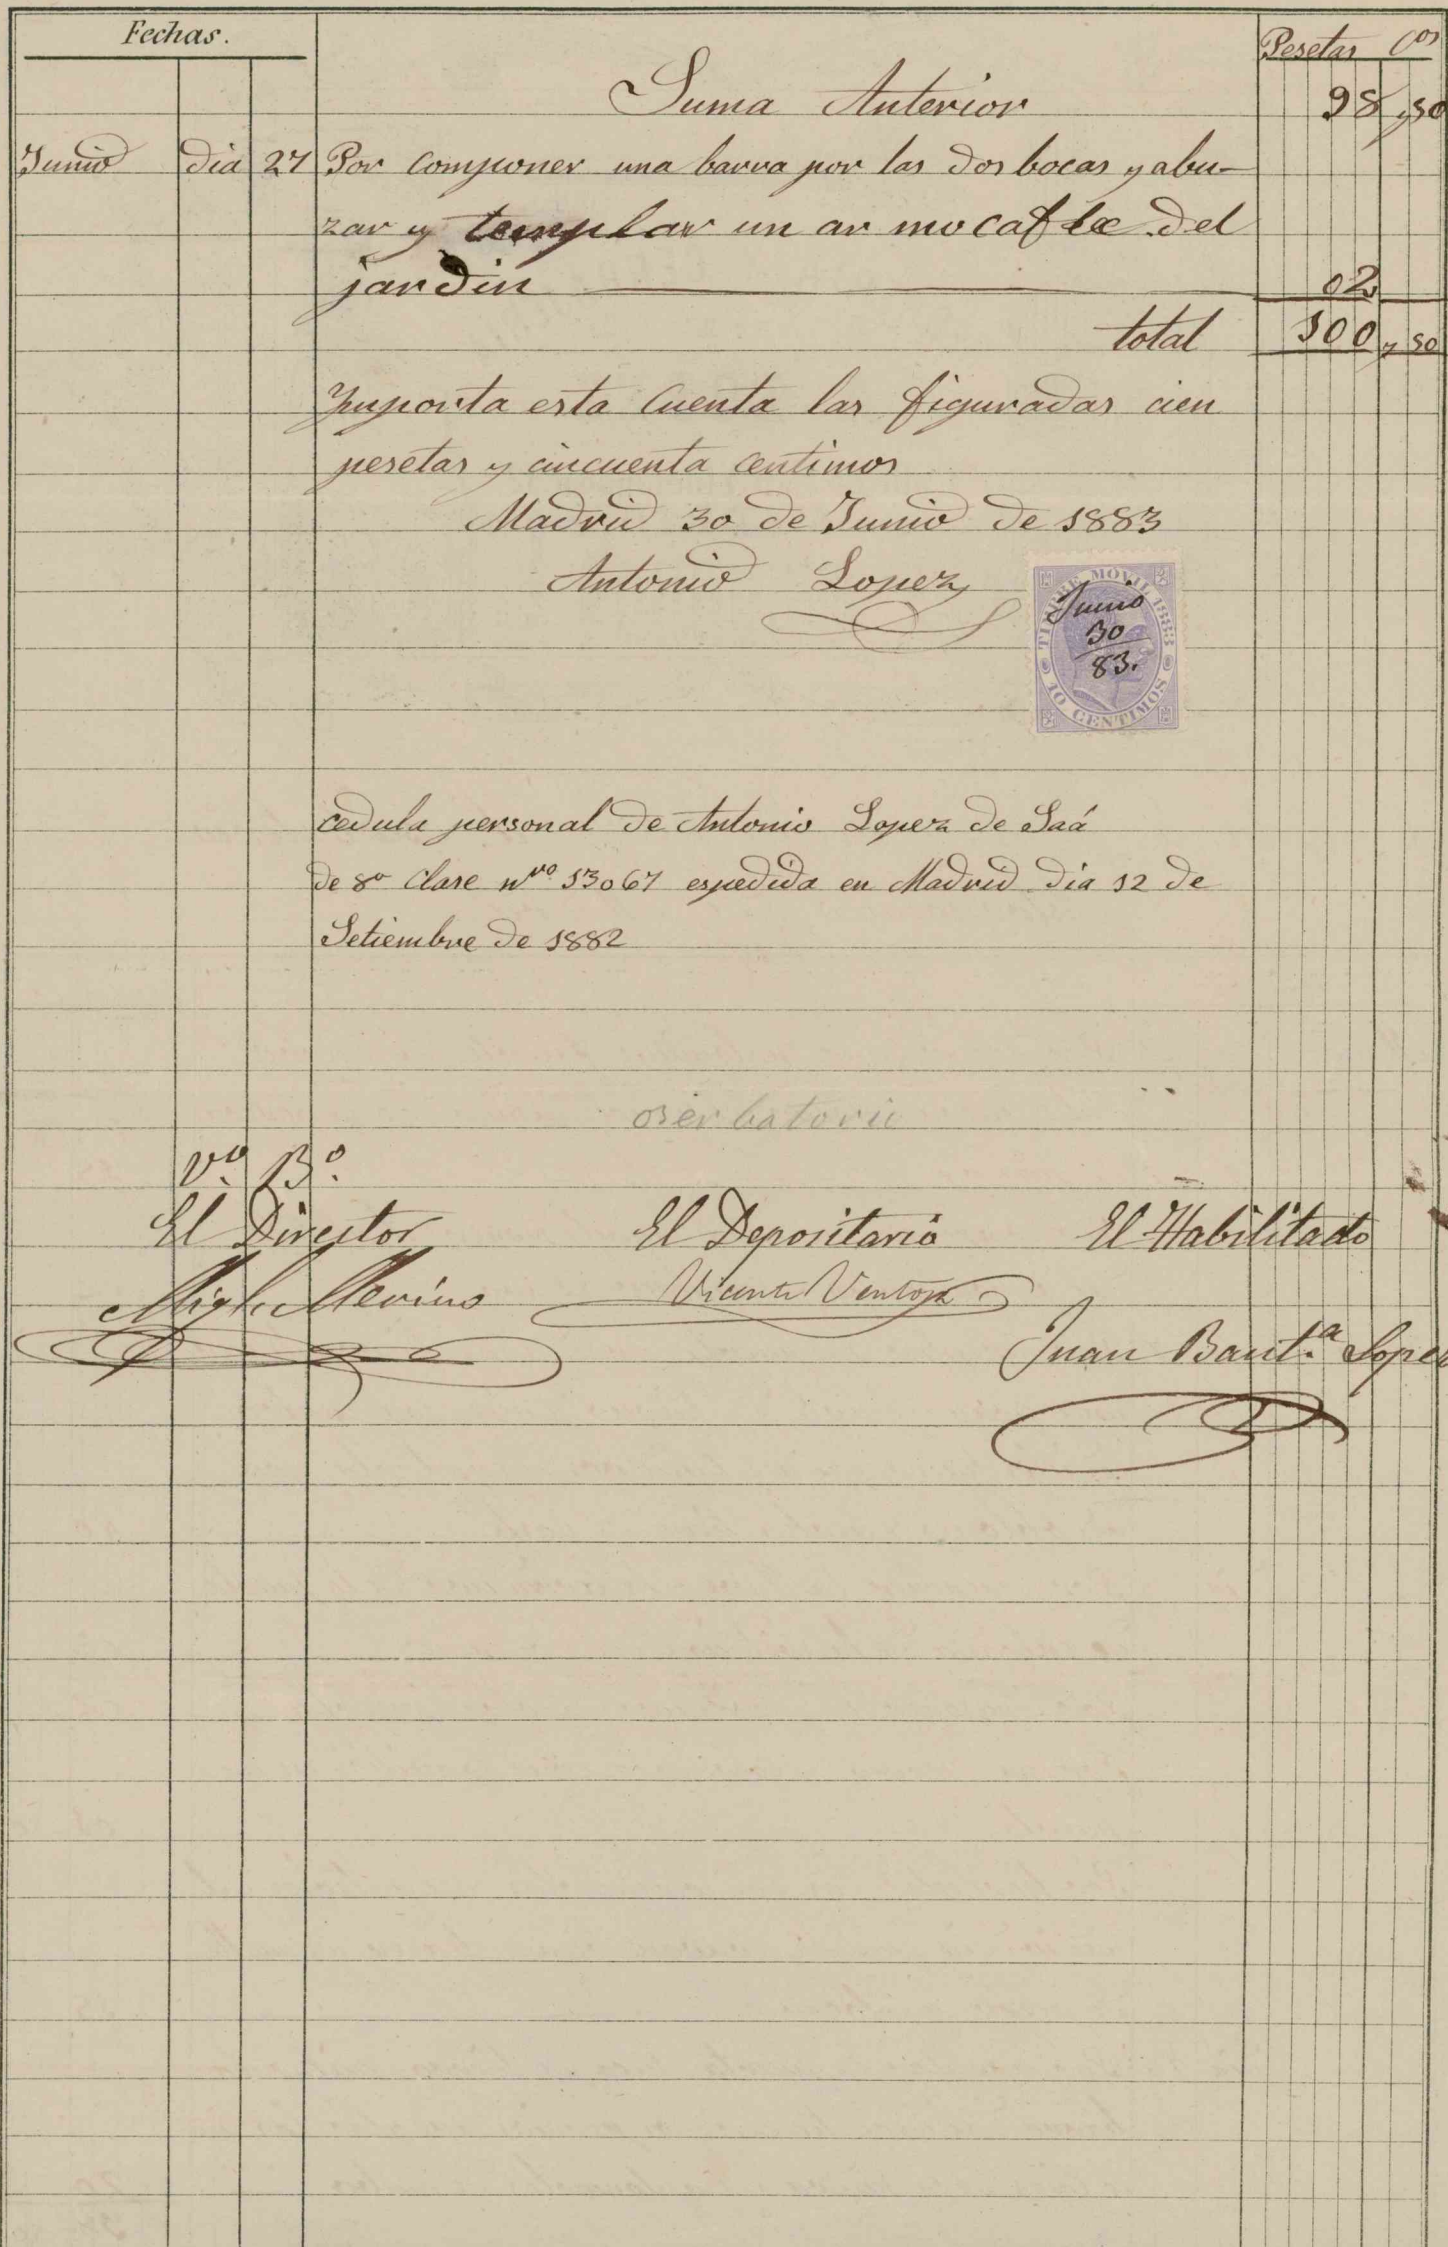 Fechas.
Pesetas Cos
Suma Anterior 98 y 50
Junio dia 27 Por componer una barra por las dos bocas y abu-
zar y templar un ar mocafle del
jardin 02
total 100 y 50
Ymporta esta Cuenta las figuradas cien
pesetas y cincuenta centimos
Madrid 30 de Junio de 1883
Antonio Lopez
TIMBRE MOVIL 1883
Junio
30
83.
10 CENTIMOS
cedula personal de Antonio Lopez de Saá
de 8ª Clase nro 13067 espedida en Madrid dia 12 de
Setiembre de 1882
oserbatorio
Vº Bº.
El Director El Depositario El Habilitado
Migl. Merino Vicente Ventosa
Juan Baut.ª Lopez